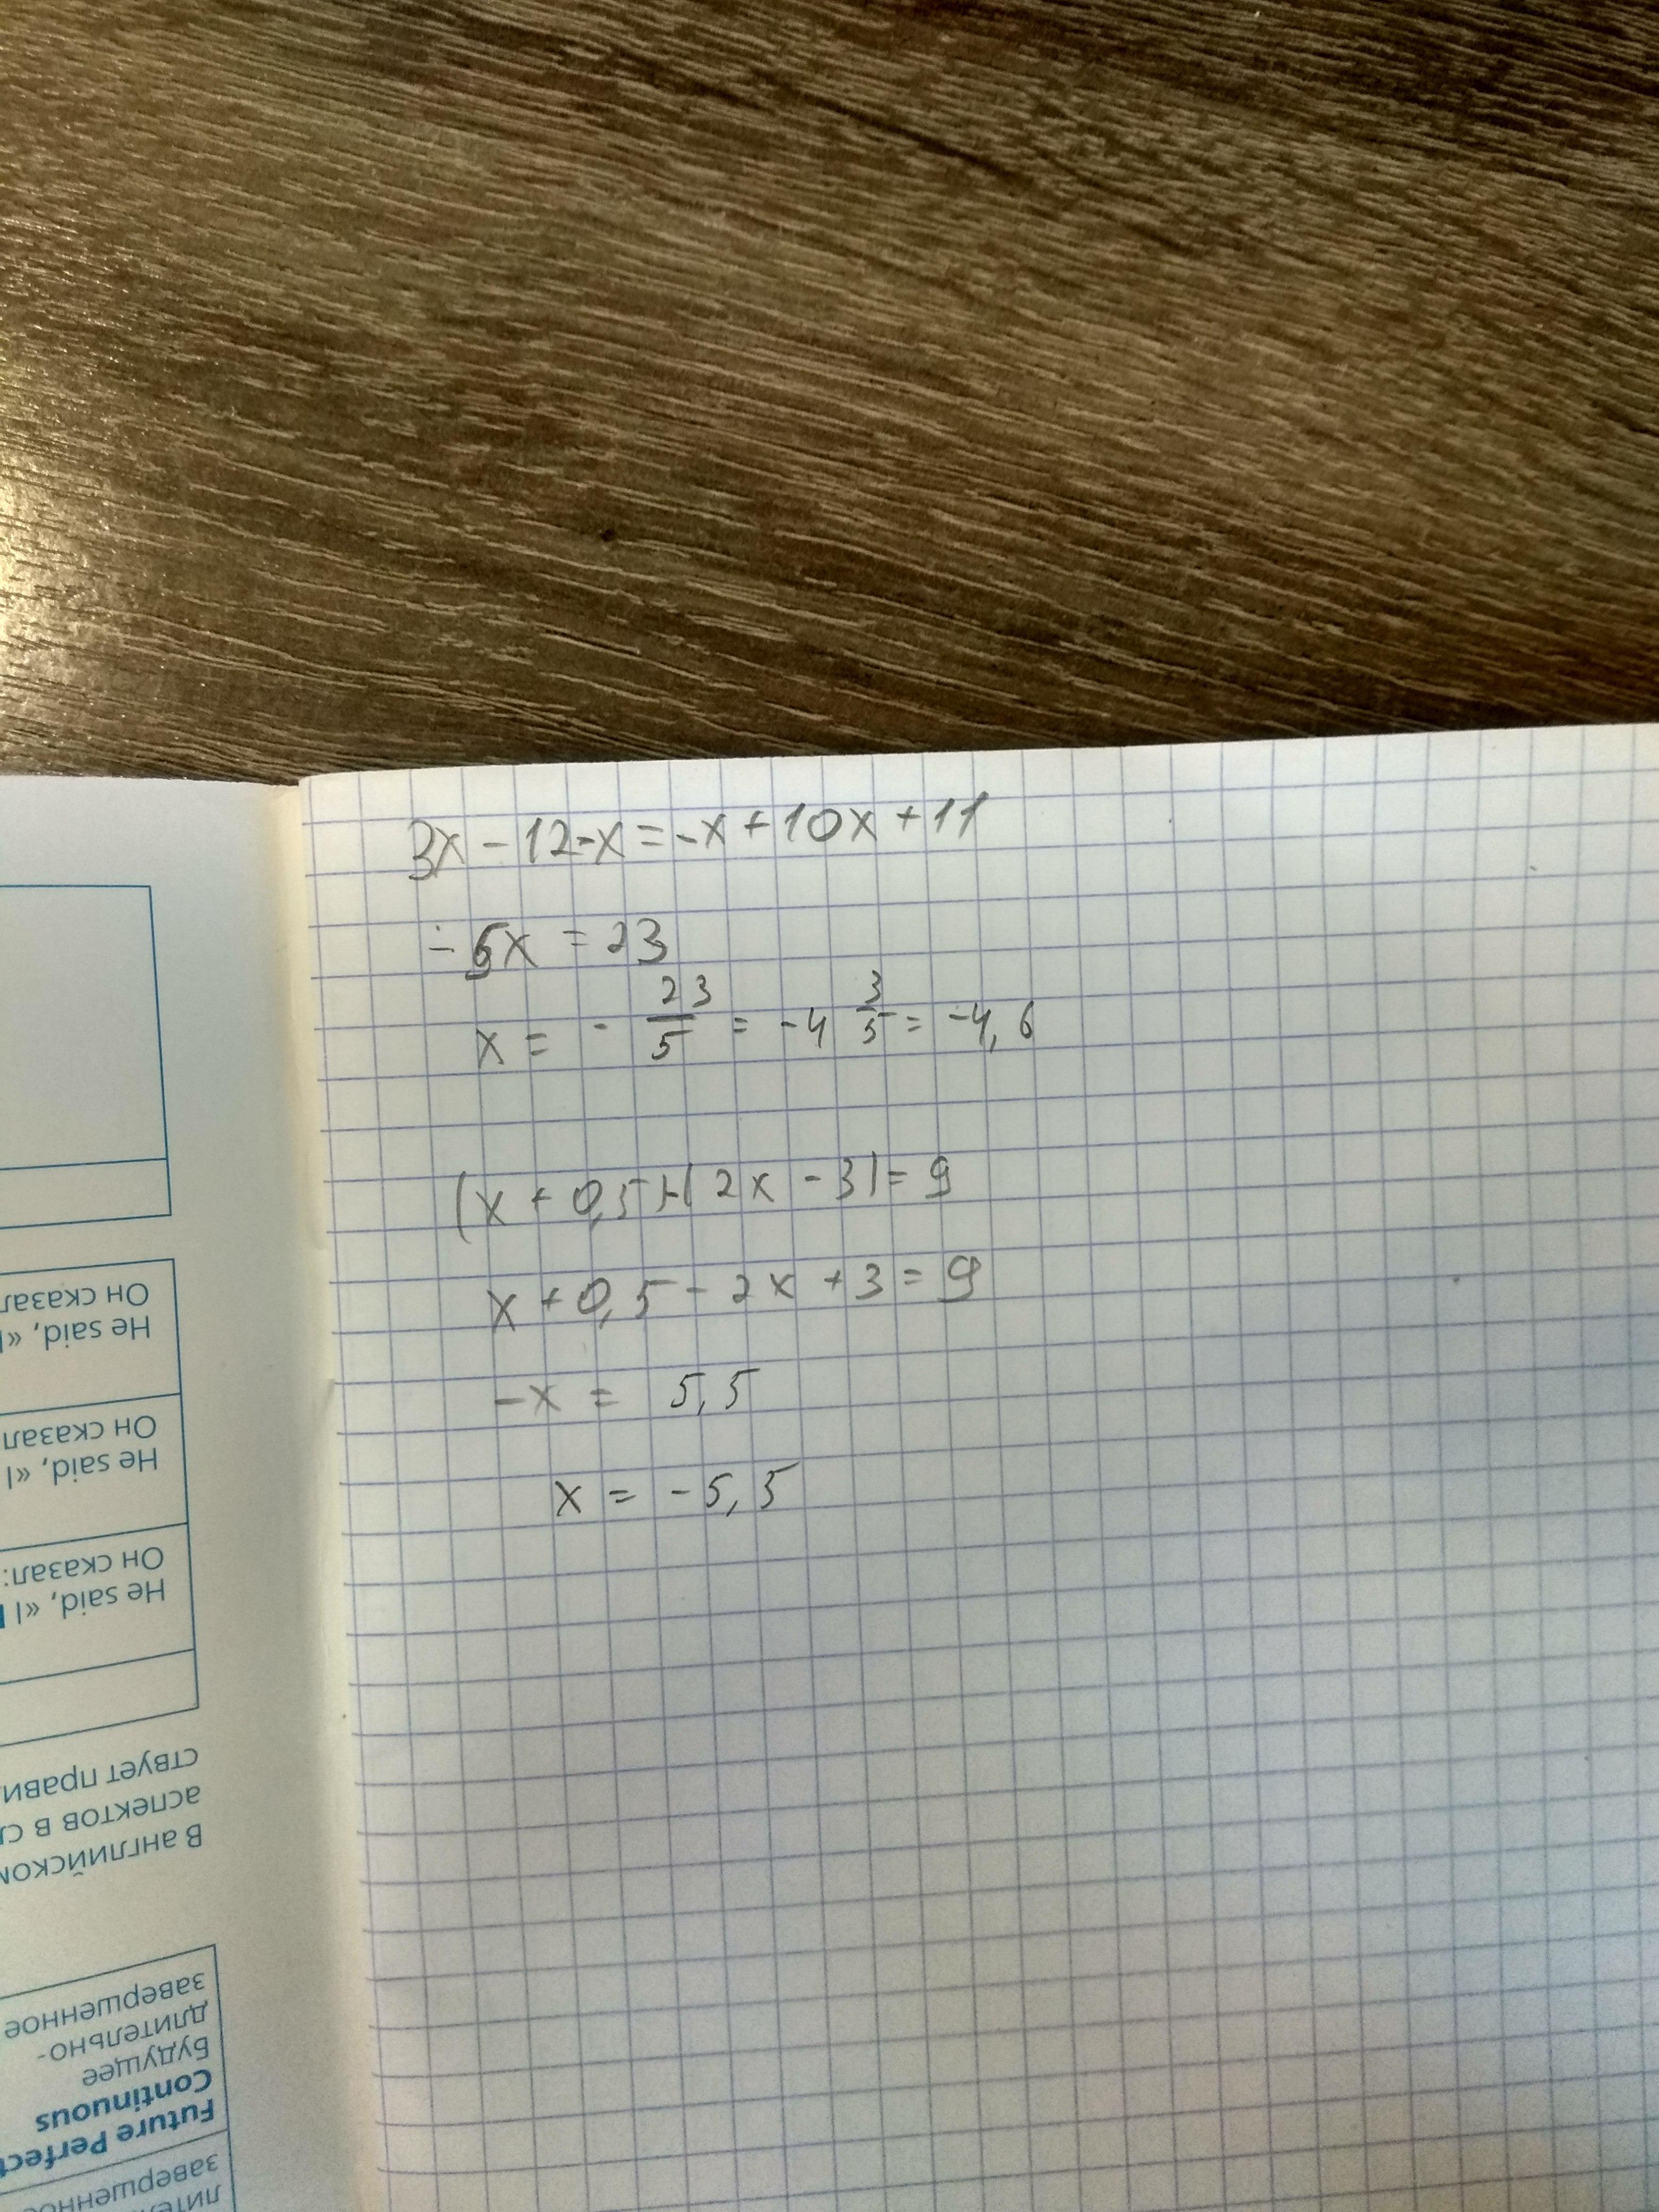 3x - 12 - x = -x + 10x + 11
- 5x = 23
x = - 23/5 = -4 3/5 = -4,6
(x + 0,5) - (2x - 3) = 9
x + 0,5 - 2x + 3 = 9
-x = 5,5
x = -5,5
лител
завершенное
Future Perfect
Continuous
Будущее
длительно-
завершенное
В английском
аспектов в с
ствует прави
He said, «I
Он сказал:
He said, «I
Он сказал
He said, «
Он сказал